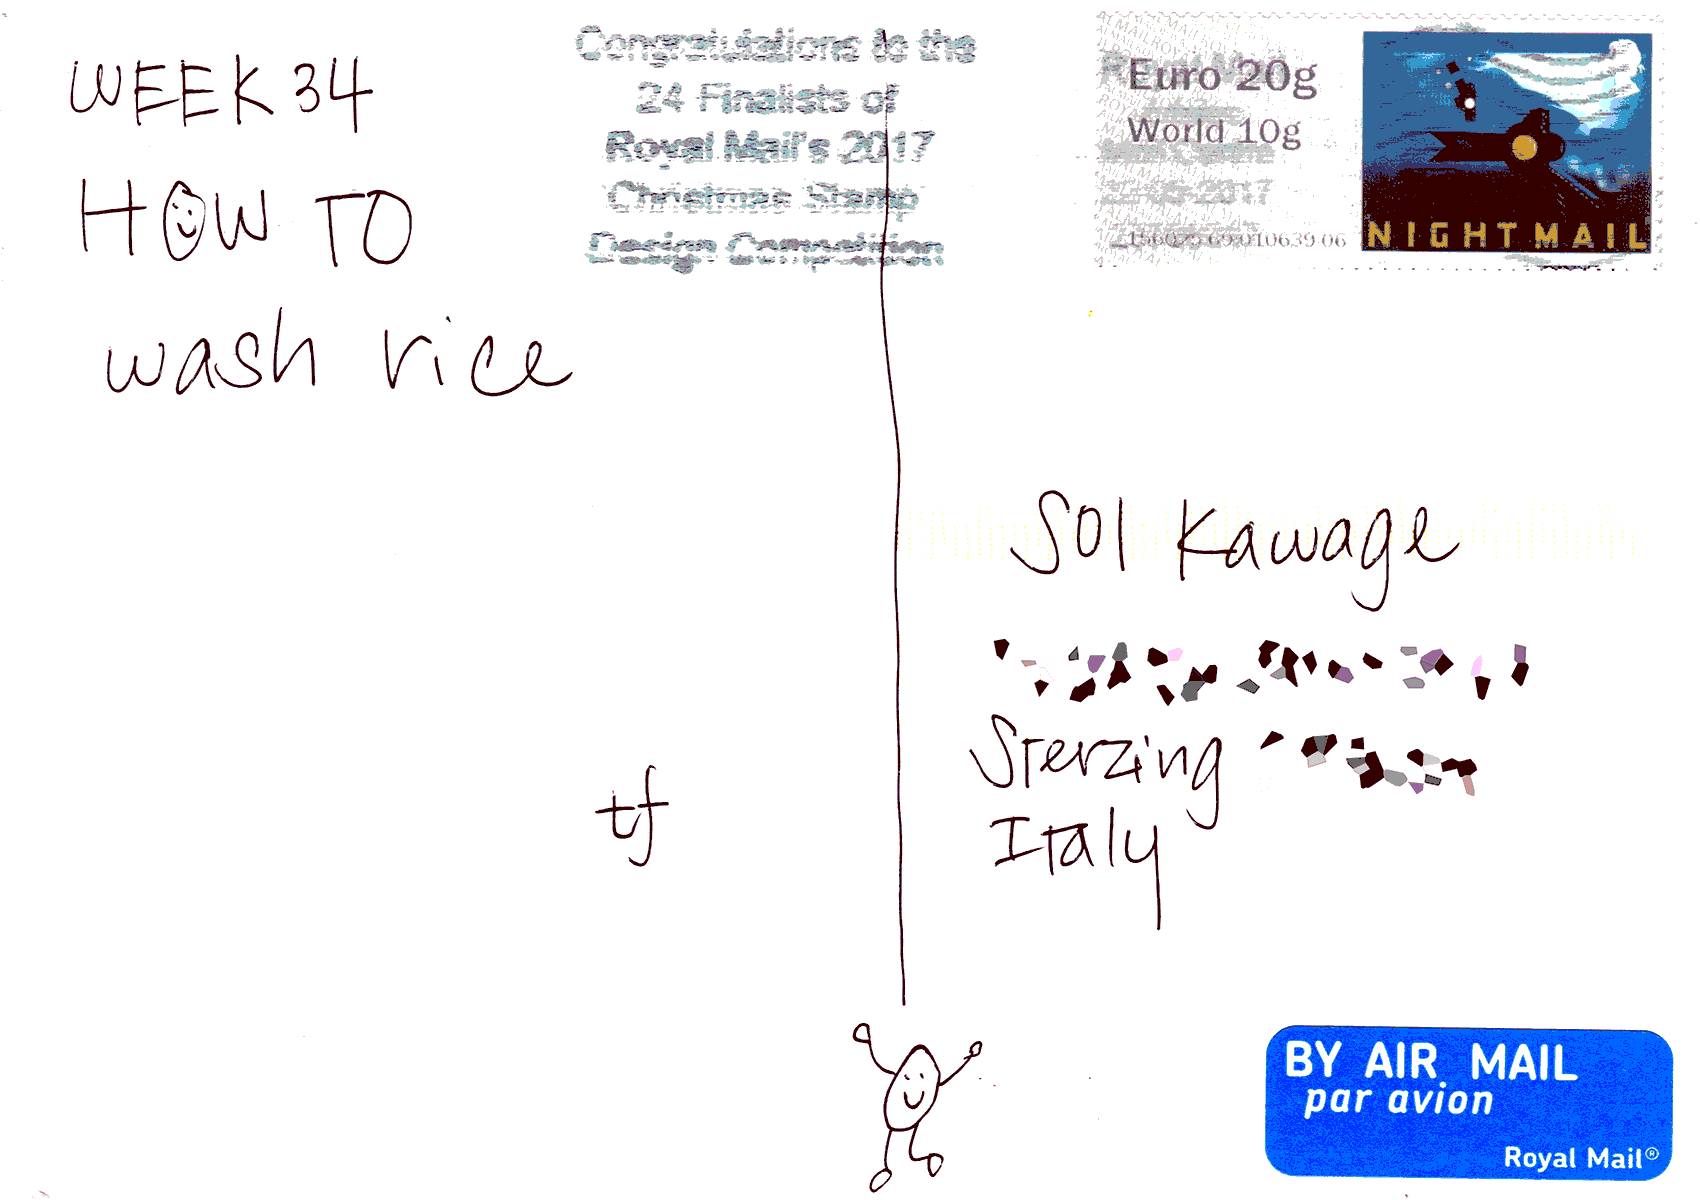 WEEK 34
HOW TO
wash rice
tf
Congratulations to the
24 Finalists of
Royal Mail's 2017
Christmas Stamp
Design Competition
Euro 20g
World 10g
NIGHT MAIL
Sol Kawage
Sterzing
Italy
BY AIR MAIL
par avion
Royal Mail®